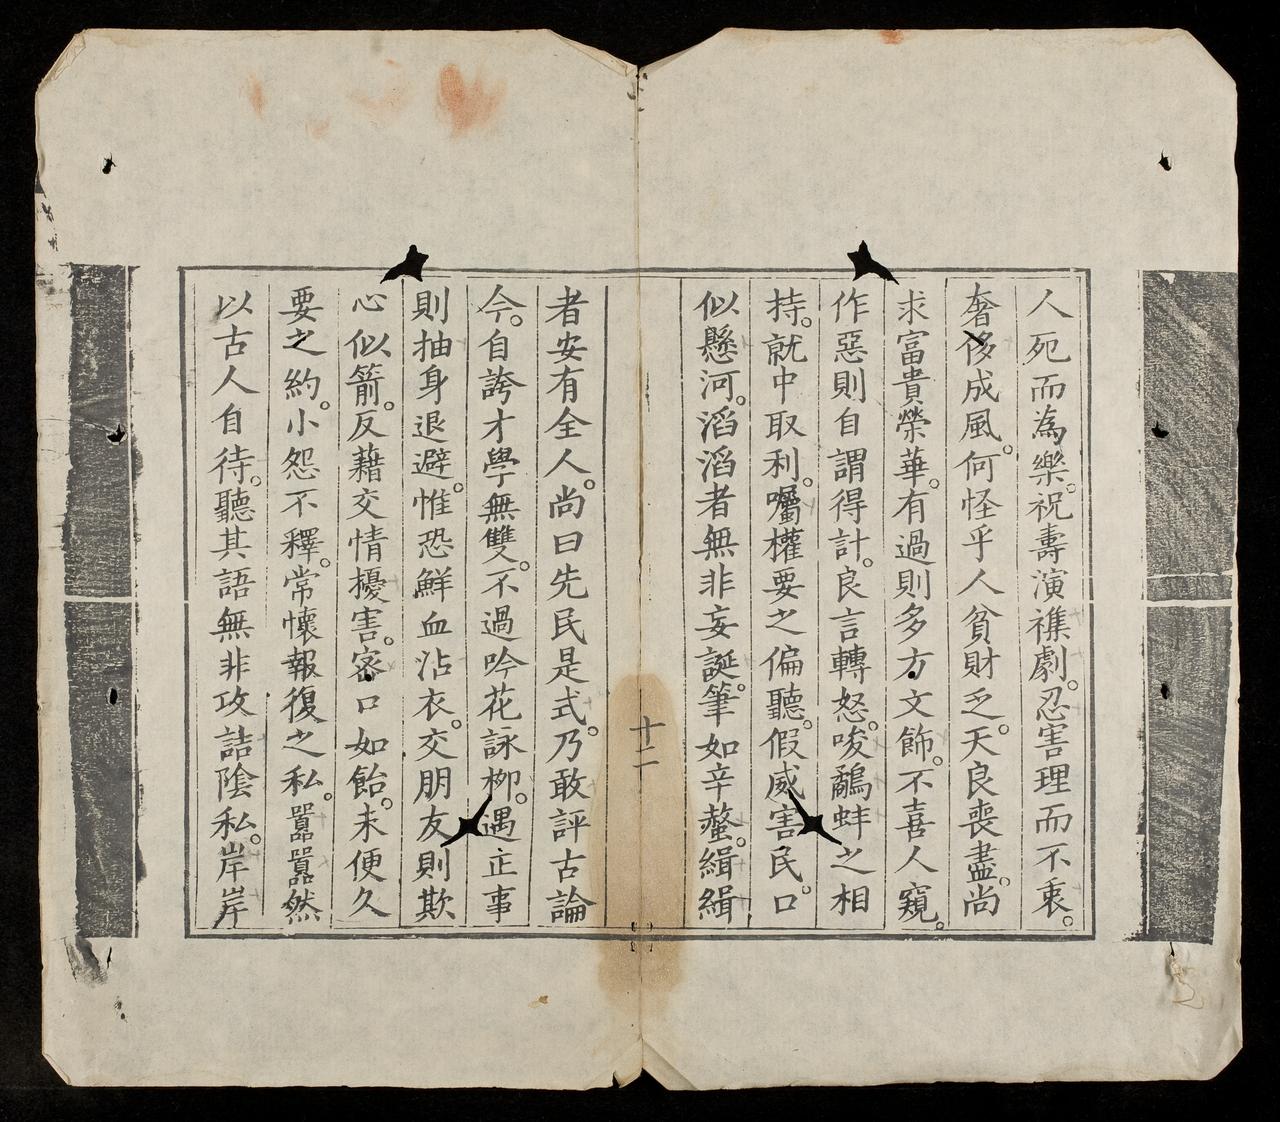 人死而為樂。祝壽演樵劇。忍害理而不衷。
奢侈成風。何怪乎人貧財乏。天良喪盡。尚
求富貴榮華。有過則多方文飾。不喜人窺。
作惡則自謂得計。良言轉怒。唆鷸蚌之相
持。就中取利。囑權要之偏聽。假威害民。口
似懸河。滔滔者無非妄誕。筆如辛螫。緝緝
十二
者安有全人。尚曰先民是式。乃敢評古論
今。自誇才學無雙。不過吟花詠柳。遇正事
則抽身退避。惟恐鮮血沾衣。交朋友則欺
心似箭。反藉交情擾害。密口如飴。未便久
要之約。小怨不釋。常懷報復之私。囂囂然
以古人自待。聽其語無非攻詰陰私。岸岸